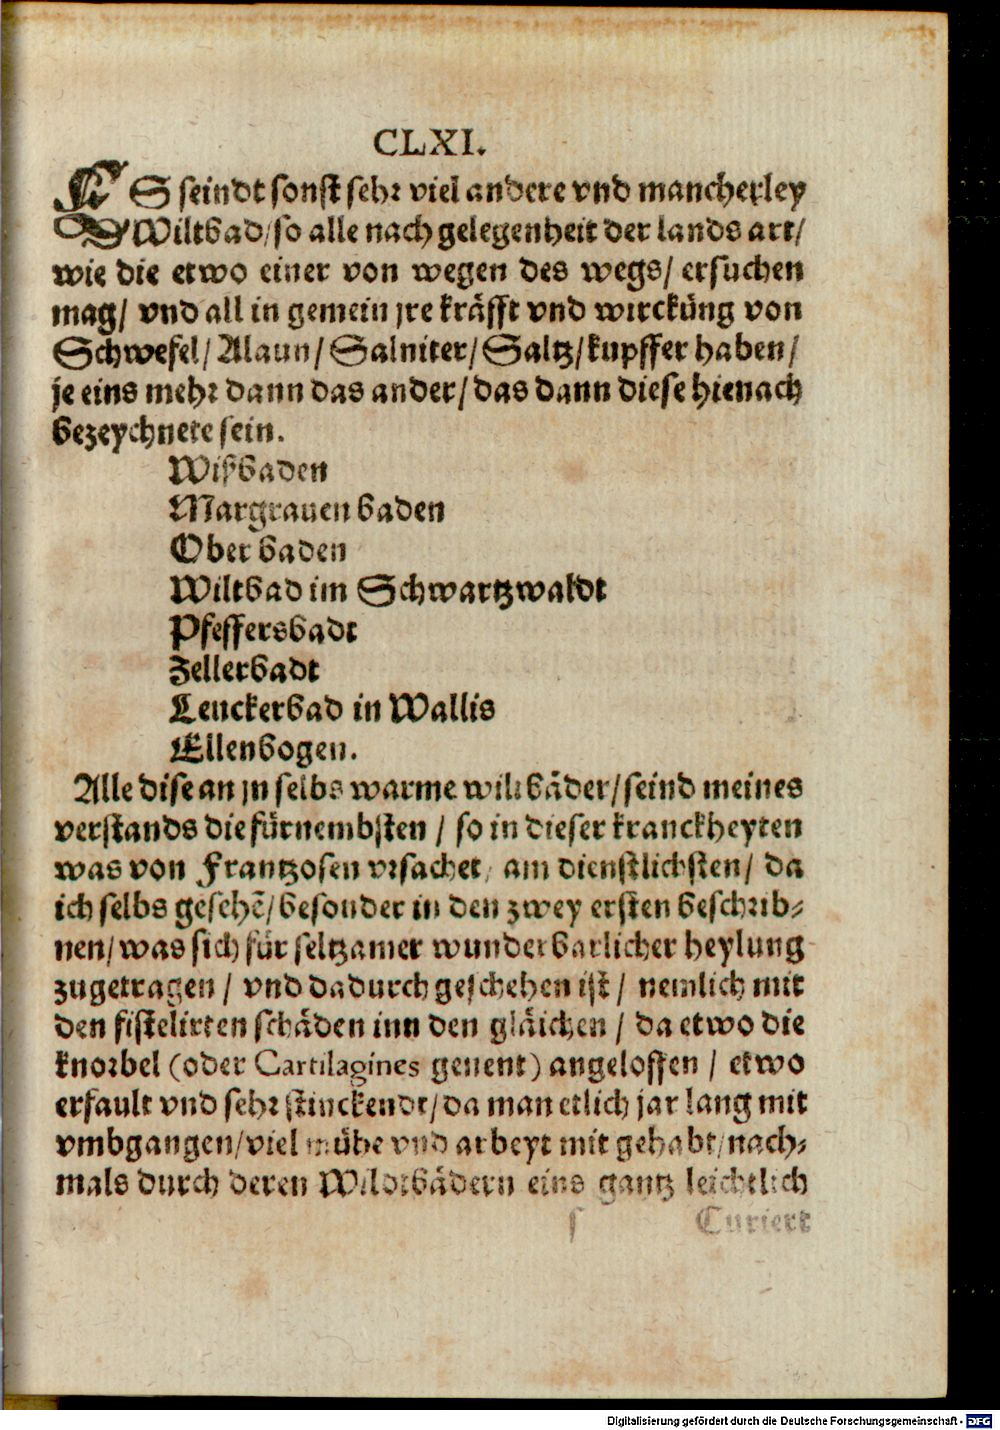 CLXI.
ES seindt sonst sehr viel andere vnd mancherley
Wiltbad/so alle nach gelegenheit der lands art/
wie die etwo einer von wegen des wegs/ ersuchen
mag/ vnd all in gemein jre kräfft vnd wirckūng von
Schwefel/ Alaun/ Salniter/ Saltz/ kupffer haben/
je eins mehr dann das ander/ das dann diese hienach
bezeychnete sein.
Wißbaden
Margrauen baden
Ober baden
Wiltbad im Schwartzwaldt
Pfeffersbadt
Zellerbadt
Leuckerbad in Wallis
Ellenbogen.
Alle dise an jn selbs warme wiltbäder/seind meines
verstands die fürnembsten / so in dieser kranckheyten
was von Frantzosen vrsachet/ am dienstlichsten/ da
ich selbs gesehē/ besonder in den zwey ersten beschrib⸗
nen/ was sich für seltzamer wunderbarlicher heylung
zugetragen / vnd dadurch geschehen ist / nemlich mit
den fistelirten schäden inn den gläichen / da etwo die
knorbel (oder Cartilagines genent) angeloffen / etwo
erfault vnd sehr stinckendt/ da man etlich jar lang mit
vmbgangen/ viel mühe vnd arbeyt mit gehabt/ nach⸗
mals durch deren Wildtbädern eins gantz leichtlich
s Curiert
Digitalisierung gefördert durch die Deutsche Forschungsgemeinschaft - DFG